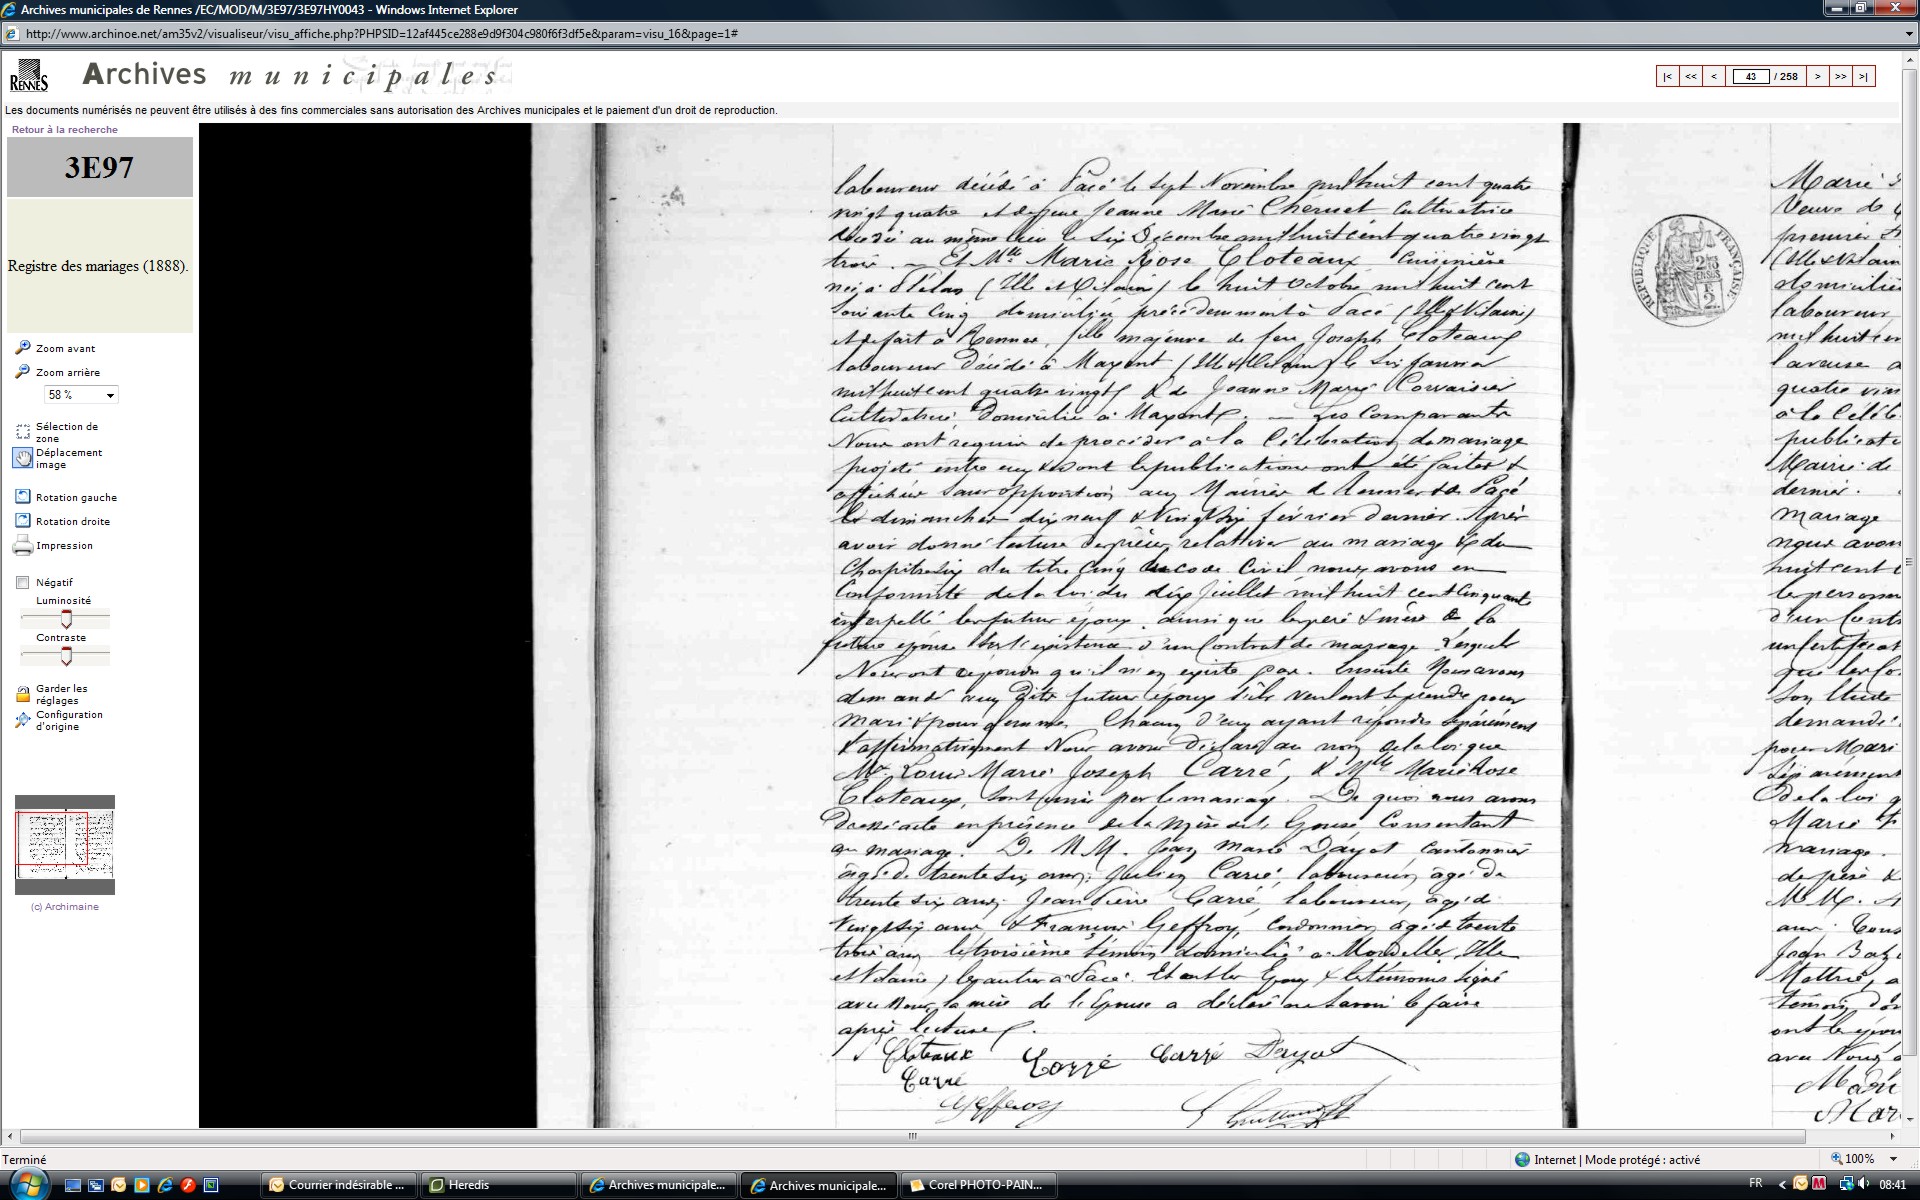 Archives municipales de Rennes /EC/MOD/M/3E97/3E97HY0043 - Windows Internet Explorer
http://www.archinoe.net/am35v2/visualiseur/visu_affiche.php?PHPSID=12af445ce288e9d9f304c980f6f3df5e&param=visu_16&page=1#
RENNES
Archives municipales
|< << < 43 / 258 > >> >|
Les documents numérisés ne peuvent être utilisés à des fins commerciales sans autorisation des Archives municipales et le paiement d'un droit de reproduction.
Retour à la recherche
3E97
Registre des mariages (1888).
Zoom avant
Zoom arrière
58 %
Sélection de
zone
Déplacement
image
Rotation gauche
Rotation droite
Impression
Négatif
Luminosité
Contraste
Garder les
réglages
Configuration
d'origine
(c) Archimaine
laboureur décédé à Pacé le sept Novembre mil huit cent quatre
vingt quatre et de feue Jeanne Marie Cheruel Cultivatrice
décédée au même lieu le six Décembre mil huit cent quatre vingt
trois. — Et Mlle Marie Rose Cloteaux Cuisinière
née à Plélan (Ille et Vilaine) le huit Octobre mil huit cent
soixante cinq domiciliée précédemment à Pacé (Ille & Vilaine)
et de fait à Rennes, fille majeure de feu Joseph Cloteaux
laboureur décédé à Maxent (Ille & Vilaine) le six Janvier
mil huit cent quatre vingt & de Jeanne Marie Corvaisier
Cultivatrice domiciliée à Maxent. — Les Comparants
Nous ont requis de procéder à la Célébration du mariage
projeté entre eux & dont les publications ont été faites &
affichées sans opposition aux Mairies de Rennes & de Pacé
les dimanches dix neuf & vingt six février dernier. Après
avoir donné lecture des pièces relatives au mariage & du
Chapitre six du titre Cinq du code Civil nous avons en
Conformité de la loi du dix Juillet mil huit cent Cinquante
interpellé les futurs époux, ainsi que les père & mère de la
future épouse sur l'existence d'un Contrat de mariage. Lesquels
Nous ont répondu qu'il n'en existe pas. Ensuite Nous avons
demandé aux dits futurs époux s'ils veulent se prendre pour
mari & pour femme. Chacun d'eux ayant répondu séparément
& affirmativement Nous avons déclaré au nom de la loi que
Mr Louis Marie Joseph Carré, & Mlle Marie Rose
Cloteaux, sont unis par le mariage. De quoi nous avons
Dressé acte en présence de la Mère de l'Epouse Consentant
au mariage. De MM. Jean Marie Dayot Cantonnier
âgé de trente six ans; Julien Carré, laboureur, âgé de
trente six ans; Jean Pierre Carré, laboureur, âgé de
Vingt six ans & François Geffroy, Cordonnier âgé de trente
trois ans, le troisième témoin domicilié à Mordelles, Ille
et Vilaine, les autres à Pacé. Et ont les Epoux & les témoins signé
avec Nous, la mère de l'Epouse a déclaré ne savoir le faire
après lecture.
Cloteaux Carré Carré Dayot
Carré
Geffroy
RÉPUBLIQUE FRANÇAISE
Marie
Veuve de
premier
(Ille & Vilain
domicilié
laboureur
mil huit cen
laveuse
quatre vin
à la Célé
publicati
Mairie de
dernier.
mariage
nous avon
huit cent
les personn
d'un Cont
un certificat
que les
son Etude
demandé
pour Mari
Séparément
de la loi q
Marie
mariage.
de père &
MM.
ans.
Jean
témoin
ont les épou
avec Nous
Terminé
Internet | Mode protégé : activé
100%
Courrier indésirable ...
Heredis
Archives municipale...
Archives municipale...
Corel PHOTO-PAIN...
FR
08:41